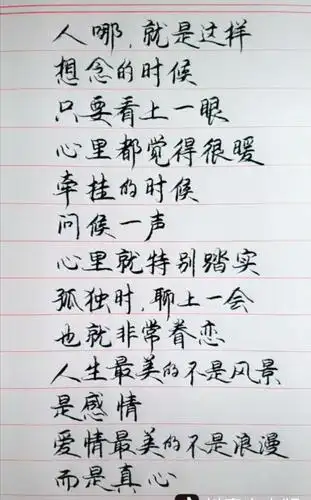 人哪,就是这样
想念的时候
只要看上一眼
心里都觉得很暖
牵挂的时候
问候一声
心里就特别踏实
孤独时,聊上一会
也就非常眷恋
人生最美的不是风景
是感情
爱情最美的不是浪漫
而是真心